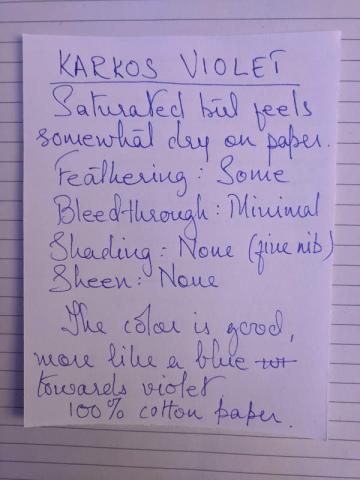 KARKOS VIOLET
Saturated but feels
somewhat dry on paper.
Feathering: Some
Bleedthrough: Minimal
Shading: None (fine nib)
Sheen: None
The color is good,
more like a blue
towards violet.
100% cotton paper.